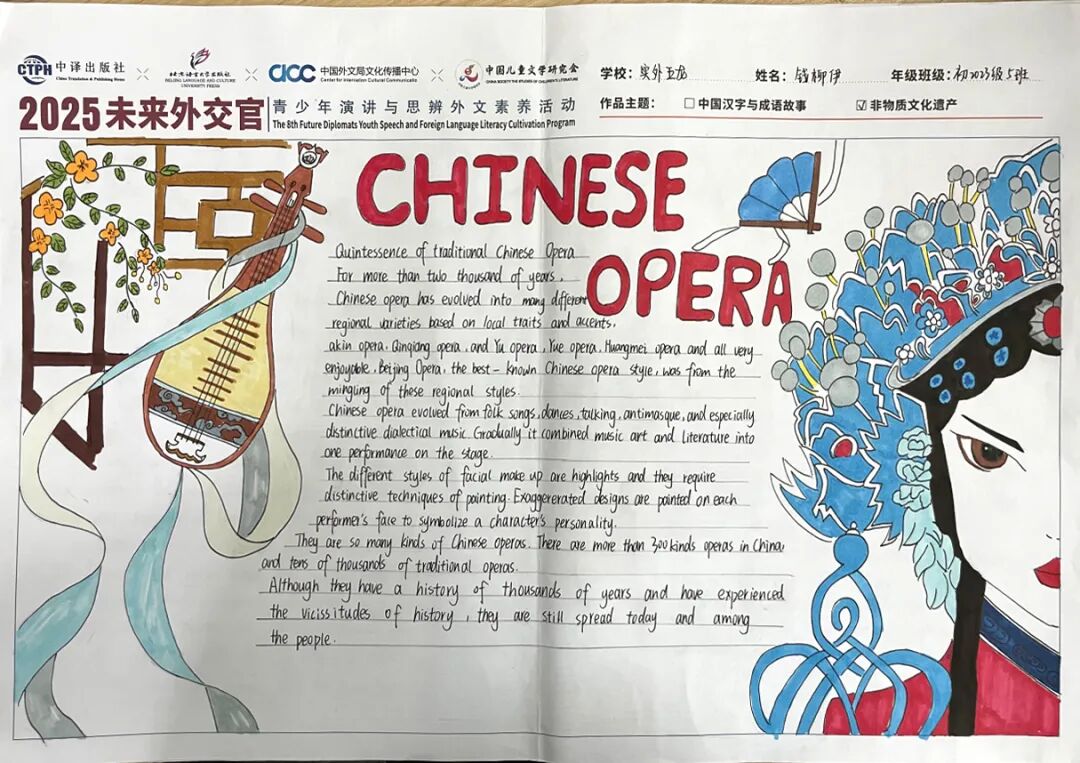 CTPH 中译出版社
China Translation & Publishing House
北京语言大学出版社
BEIJING LANGUAGE AND CULTURE
UNIVERSITY PRESS
CICC 中国外文局文化传播中心
Center for International Cultural Communication
中国儿童文学研究会
CHINA SOCIETY THE STUDIES OF CHILDREN'S LITERATURE
学校: 实外五龙
姓名: 钱柳伊
年级班级: 初2023级5班
2025未来外交官
青少年演讲与思辨外文素养活动
The 8th Future Diplomats Youth Speech and Foreign Language Literacy Cultivation Program
作品主题: ☐ 中国汉字与成语故事 ☑ 非物质文化遗产
CHINESE
OPERA
Quintessence of traditional Chinese Opera
For more than two thousand of years,
Chinese opera has evolved into many different
regional varieties based on local traits and accents.
akin opera. Qinqiang opera, and Yu opera, Yue opera, Huangmei opera and all very
enjoyable. Beijing Opera, the best-known Chinese opera style, was from the
mingling of these regional styles.
Chinese opera evolved from folk songs, dances, talking, antimasque, and especially
distinctive dialectical music. Gradually it combined music art and literature into
one performance on the stage.
The different styles of facial make up are highlights and they require
distinctive techniques of painting. Exaggererated designs are painted on each
performer's face to symbolize a character's personality.
They are so many kinds of Chinese operas. There are more than 300 kinds operas in China,
and tens of thousands of traditional operas.
Although they have a history of thousands of years and have experienced
the vicissitudes of history, they are still spread today and among
the people.